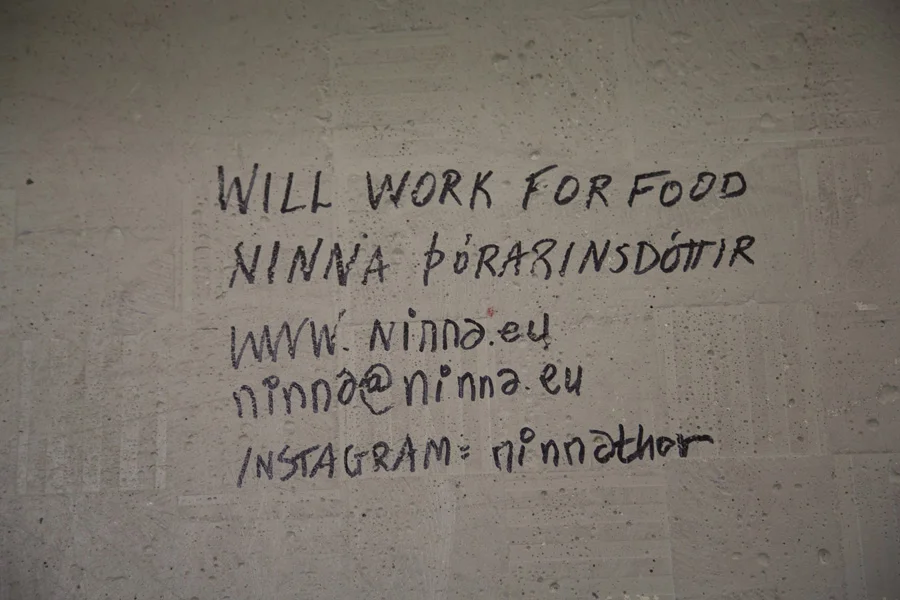 WILL WORK FOR FOOD
NINNA ÞÓRARINSDÓTTIR
WWW.ninna.eu
ninna@ninna.eu
INSTAGRAM: ninnathor